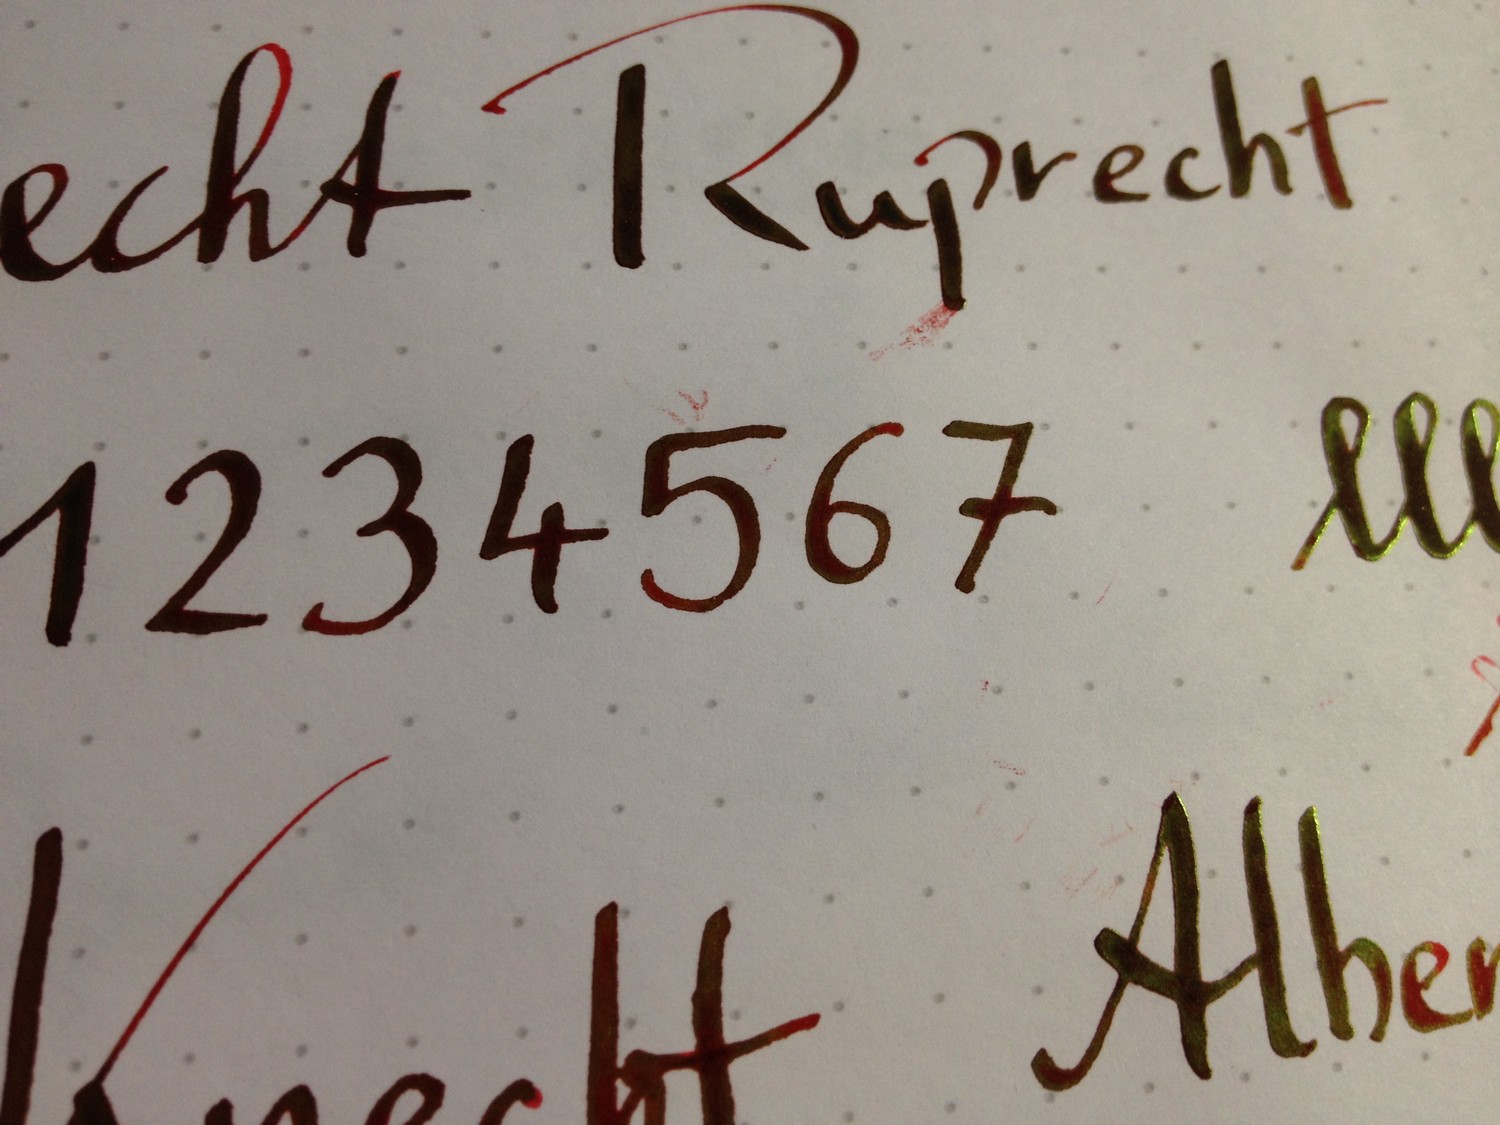 echt Ruprecht
1 2 3 4 5 6 7 lll
Knecht Alber